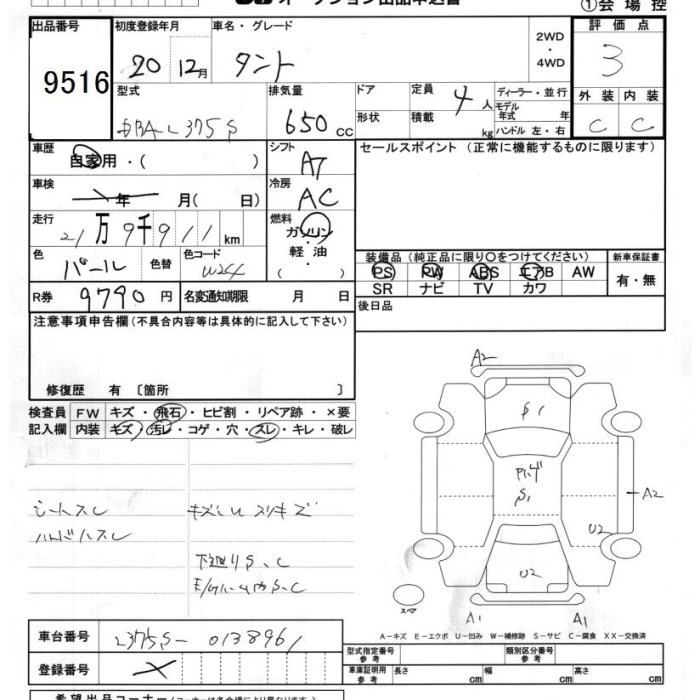 ①会場控
出品番号 初度登録年月 車名・グレード 評価点
9516 20 12月 タント 2WD・4WD 3
型式 排気量 ドア 定員 4人 ディーラー・並行 外装 内装
DBA-L375S 650cc 形状 積載 kg モデル年式 年 C C
ハンドル 左・右
車歴 自家用・( ) シフト AT セールスポイント (正常に機能するものに限ります)
車検 年 月( 日) 冷房 AC
走行 21万9千911km 燃料 ガソリン・軽油 ( )
色 パール 色替 色コード W24
装備品 (純正品に限り○をつけてください) 新車保証書
PS PW ABS エアB AW 有・無
SR ナビ TV カワ
R券 9790円 名変通知期限 月 日 後日品
注意事項申告欄(不具合内容等は具体的に記入して下さい)
修復歴 有 〔箇所 〕
検査員 FW キズ・飛石・ヒビ割・リペア跡・×要
記入欄 内装 キズ・汚レ・コゲ・穴・スレ・キレ・破レ
シートスレ キズ凹 スリキズ
ハンドルスレ
下廻りS、C
A2
S1
S1
A2
U2
U2
スペア
A1 A1
A-キズ E-エクボ U-凹み W-補修跡 S-サビ C-腐食 XX-交換済
車台番号 L375S-0138961
登録番号
型式指定番号 参考 類別区分番号 参考
車庫証明用 参考 長さ cm 幅 cm 高さ cm